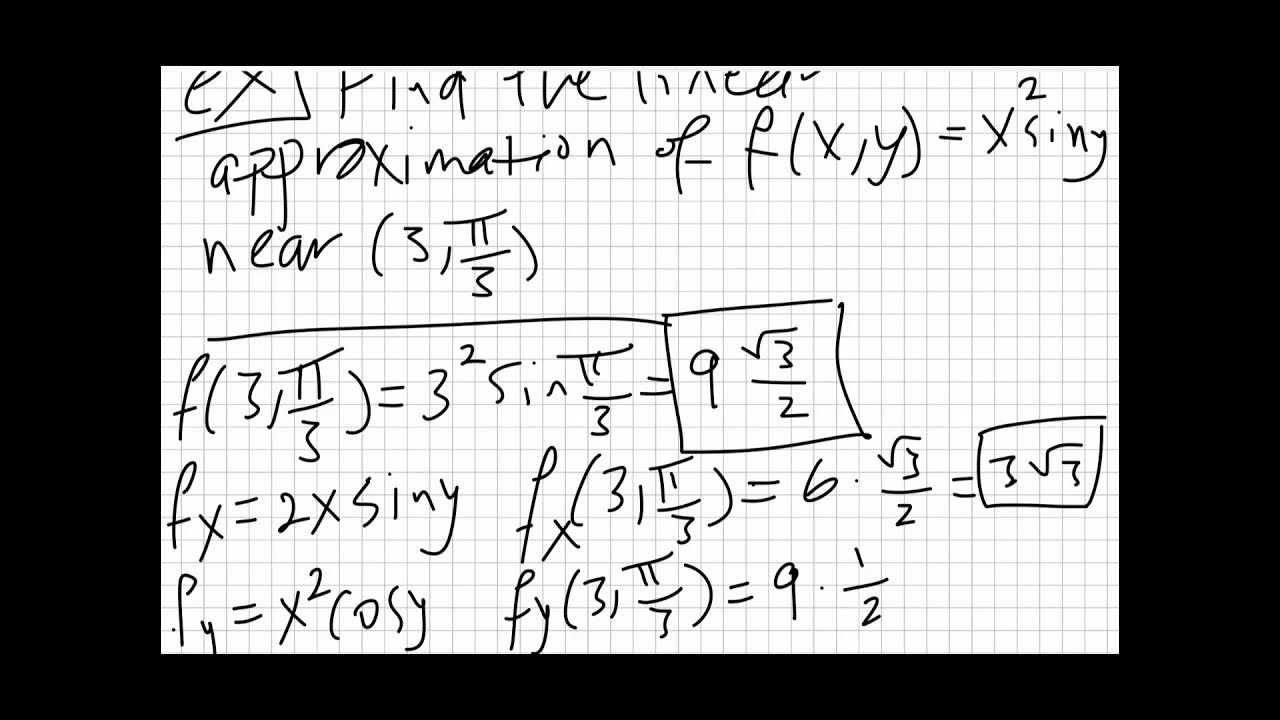 ex] Find the linear
approximation of f(x,y) = x² sin y
near (3, π/3)
f(3, π/3) = 3² sin π/3 = 9 √3/2
fx = 2x sin y fx(3, π/3) = 6 · √3/2 = 3√3
fy = x² cos y fy(3, π/3) = 9 · 1/2